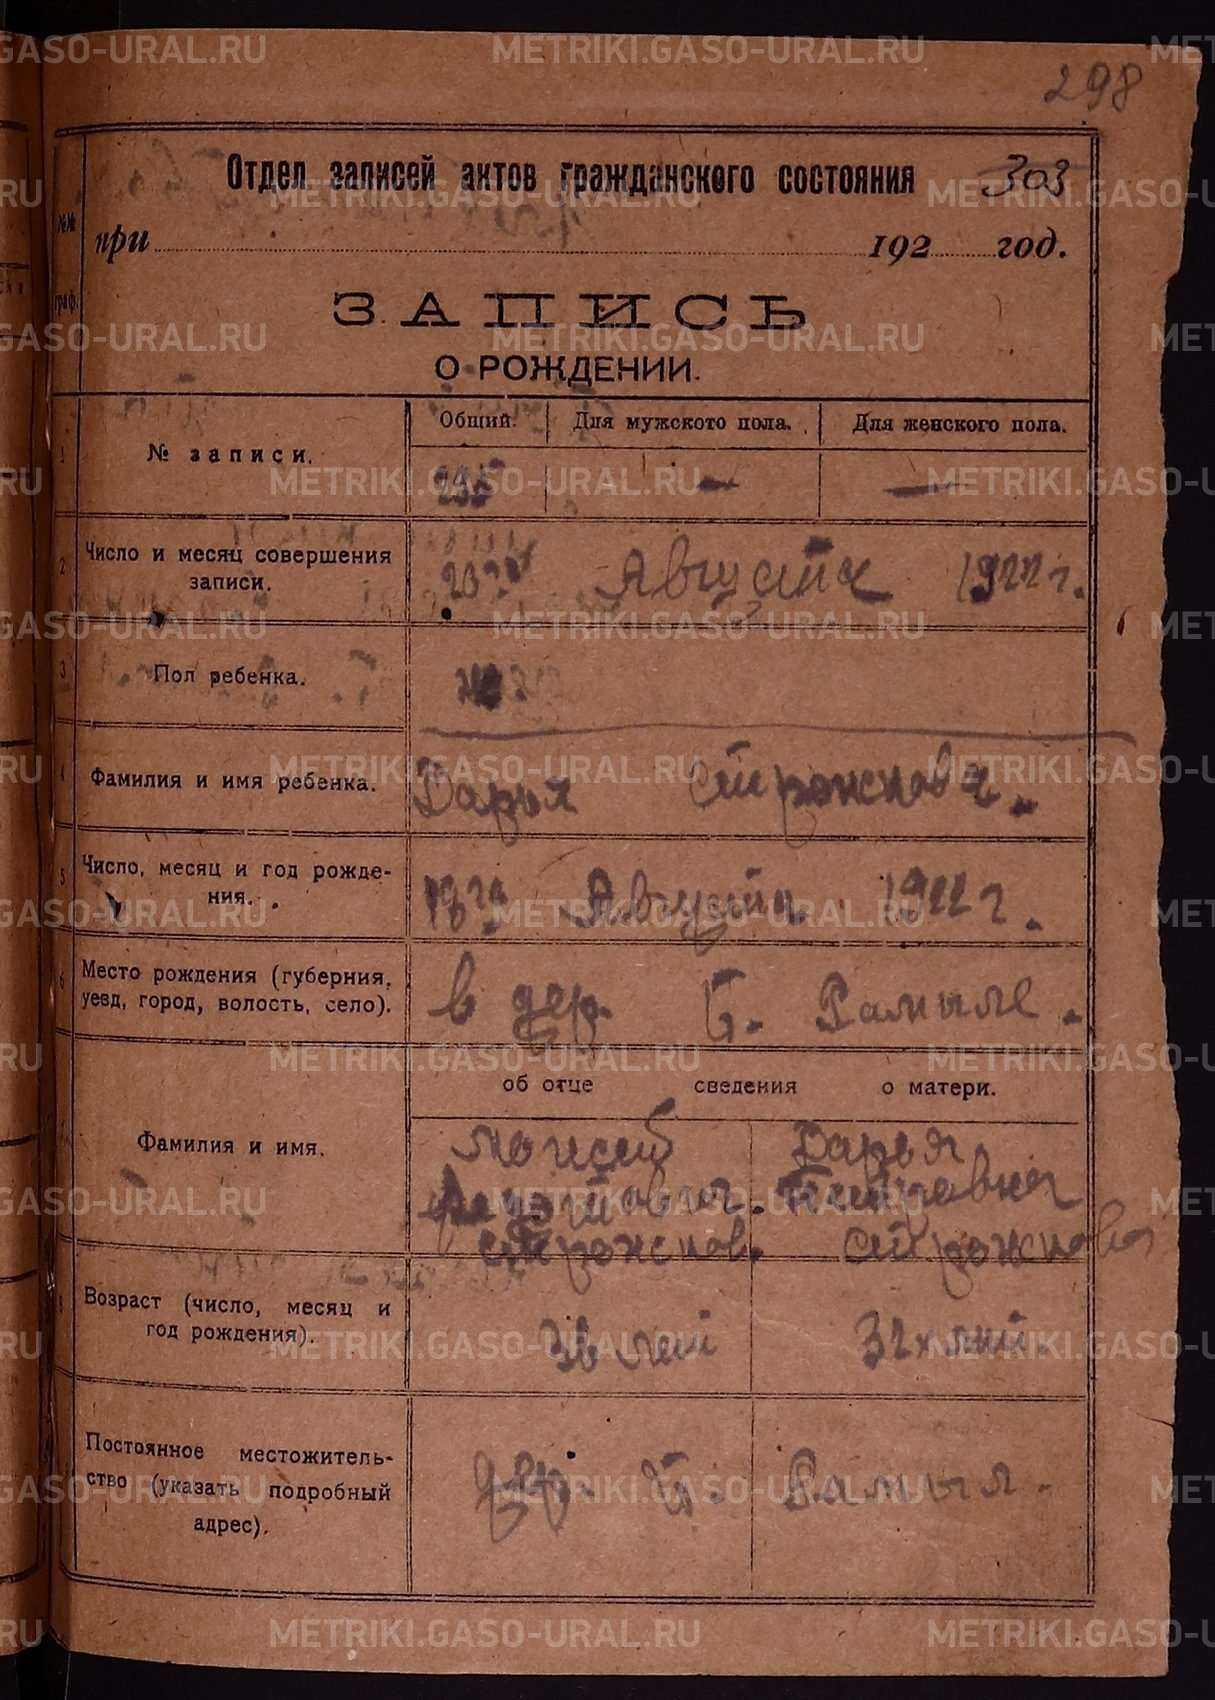 298
Отдел записей актов гражданского состояния 303
№№ граф.
при 192 год.
ЗАПИСЬ
О РОЖДЕНИИ.
Общий. Для мужского пола. Для женского пола.
1 № записи.
235 — —
2 Число и месяц совершения записи.
Августа 1922 г.
3 Пол ребенка.
4 Фамилия и имя ребенка.
Дарья
5 Число, месяц и год рождения.
Августа 1922 г.
6 Место рождения (губерния, уезд, город, волость, село).
в дер. Б. Рамыле.
об отце сведения о матери.
Фамилия и имя.
Моисей Дарья
Петровна
8 Возраст (число, месяц и год рождения).
36 лет
Постоянное местожительство (указать подробный адрес).
дер. Б. Рамыл.
METRIKI.GASO-URAL.RU